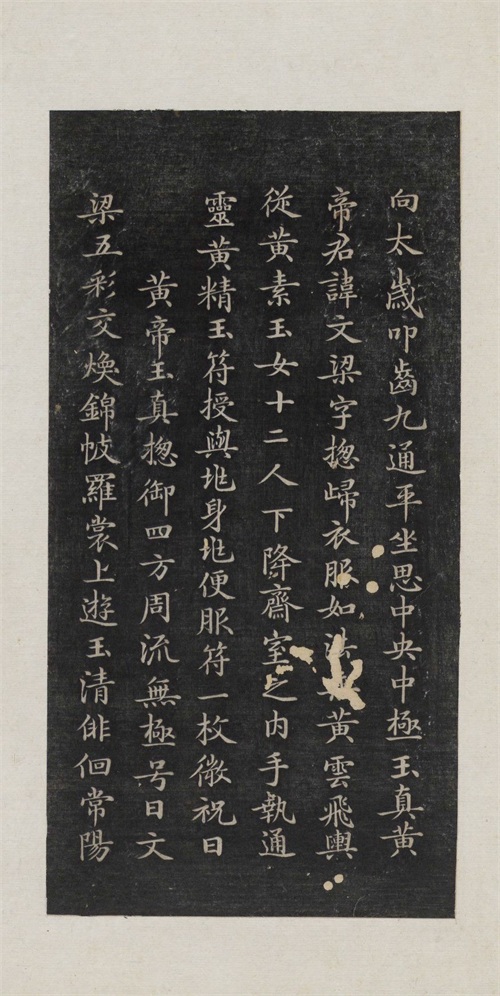 向太歲叩齒九通平坐思中央中極玉真黃
帝君諱文梁字摠歸衣服如法乘黃雲飛輿
從黃素玉女十二人下降齋室之内手執通
靈黃精玉符授與兆身兆便服符一枚微祝曰
黃帝玉真摠御四方周流無極号曰文
梁五彩交煥錦帔羅裳上遊玉清俳佪常陽